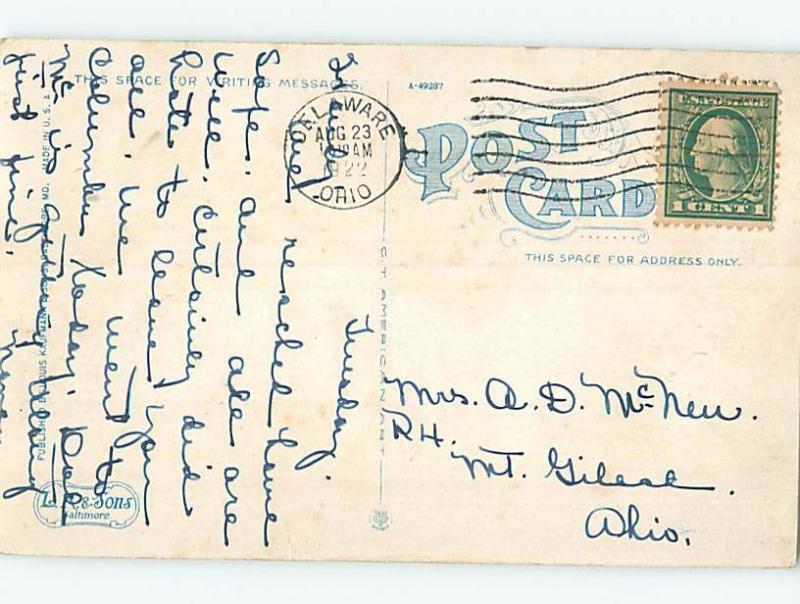 THIS SPACE FOR WRITING MESSAGES.
A-49287
DELAWARE
AUG 23
AM
1922
OHIO
U.S. POSTAGE
1 CENT 1
POST
CARD
THIS SPACE FOR ADDRESS ONLY.
Tuesday.
reached home
Safe. and all are
well. Certainly did
hate to leave you
all. We went to
Columbus today.
Mc is
just fine.
Mrs. A. D. McNew.
R4.
Mt. Gilead.
Ohio.
C T AMERICAN ART
PUBLISHED BY LOUIS KAUFMANN & SONS, BALTIMORE, MD. MADE IN U. S. A.
L. K. & Sons
Baltimore